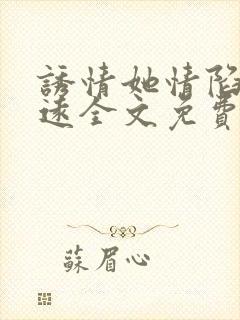 誘情她情陷
速全文免費
蘇眉心